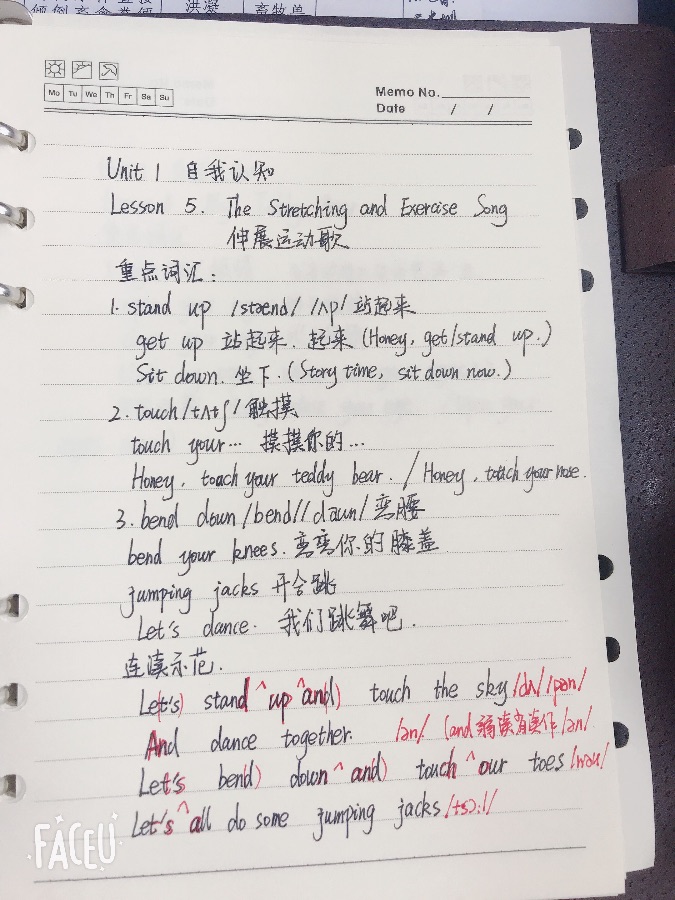 倾倒 畜禽粪便 洪凝 畜牧兽
Mo Tu We Th Fr Sa Su
Memo No.
Date / /
Unit 1 自我认知
Lesson 5. The Stretching and Exercise Song
伸展运动歌
重点词汇:
1. stand up /stænd/ /ʌp/ 站起来
get up 站起来. 起来 (Honey, get/stand up.)
Sit down. 坐下. (Story time, sit down now.)
2. touch /tʌtʃ/ 触摸
touch your... 摸摸你的...
Honey, touch your teddy bear. / Honey, touch your nose.
3. bend down /bend/ /daun/ 弯腰
bend your knees. 弯弯你的膝盖
jumping jacks 开合跳
Let's dance. 我们跳舞吧.
连读示范.
Le(t's) stand ^ up ^ an(d) touch the sky /dʌ/ /pən/
And dance together. /ən/ (and 弱读有读作 /ən/.
Let's ben(d) down ^ an(d) touch ^ our toes /nəu/
Let's ^ all do some jumping jacks /tsɔ:l/
FACEU